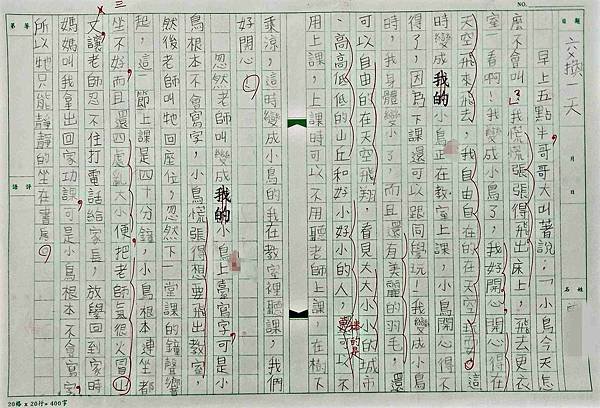 NO.
題目
月
日
姓名
交換一天
早上五點半,哥哥大叫著說:「小鳥今天怎
麼不會叫?我慌慌張張得飛出床上,飛去更衣
室一看啊!我變成小鳥了,我好開心,開心得在
天空飛來飛去,我自由自在的在天空 這
時變成我的小鳥正在教室上課,小鳥開心得不
得了,因為下課還可以跟同學玩!我變成小鳥
時,我身體變小了,而且還有美麗的羽毛,還
可以自由的在天空飛翔,看見大大小小的城市
、高高低低的山丘和好小好小的人,最棒的是可以不
用上課,上課時可以不用聽老師上課,在樹下
乘涼,這時變成小鳥的我在教室裡聽課,我們
好開心。
忽然老師叫變成我的小鳥上臺寫字可是小
鳥根本不會寫字,小鳥慌張得想要飛出教室,
然後老師叫牠回座位,忽然下一堂課的鐘聲響
起,這一節上課是四十分鐘,小鳥根本連坐都
坐不好,而且還四處亂大小便,把老師氣很火冒三
丈,讓老師忍不住打電話給家長,放學回到家時
媽媽叫我拿出回家功課,可是小鳥根本不會寫字,
所以牠只能靜靜的坐在書房。
等第
評語
20格×20行=400字